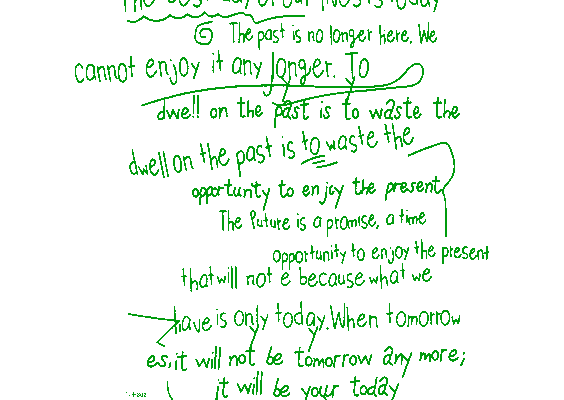 The best day of our lives is today
The past is no longer here. We
cannot enjoy it any longer. To
dwell on the past is to waste the
dwell on the past is to waste the
opportunity to enjoy the present
The Future is a promise, a time
opportunity to enjoy the present
that will not e because what we
have is only today. When tomorrow
es, it will not be tomorrow any more;
it will be your today